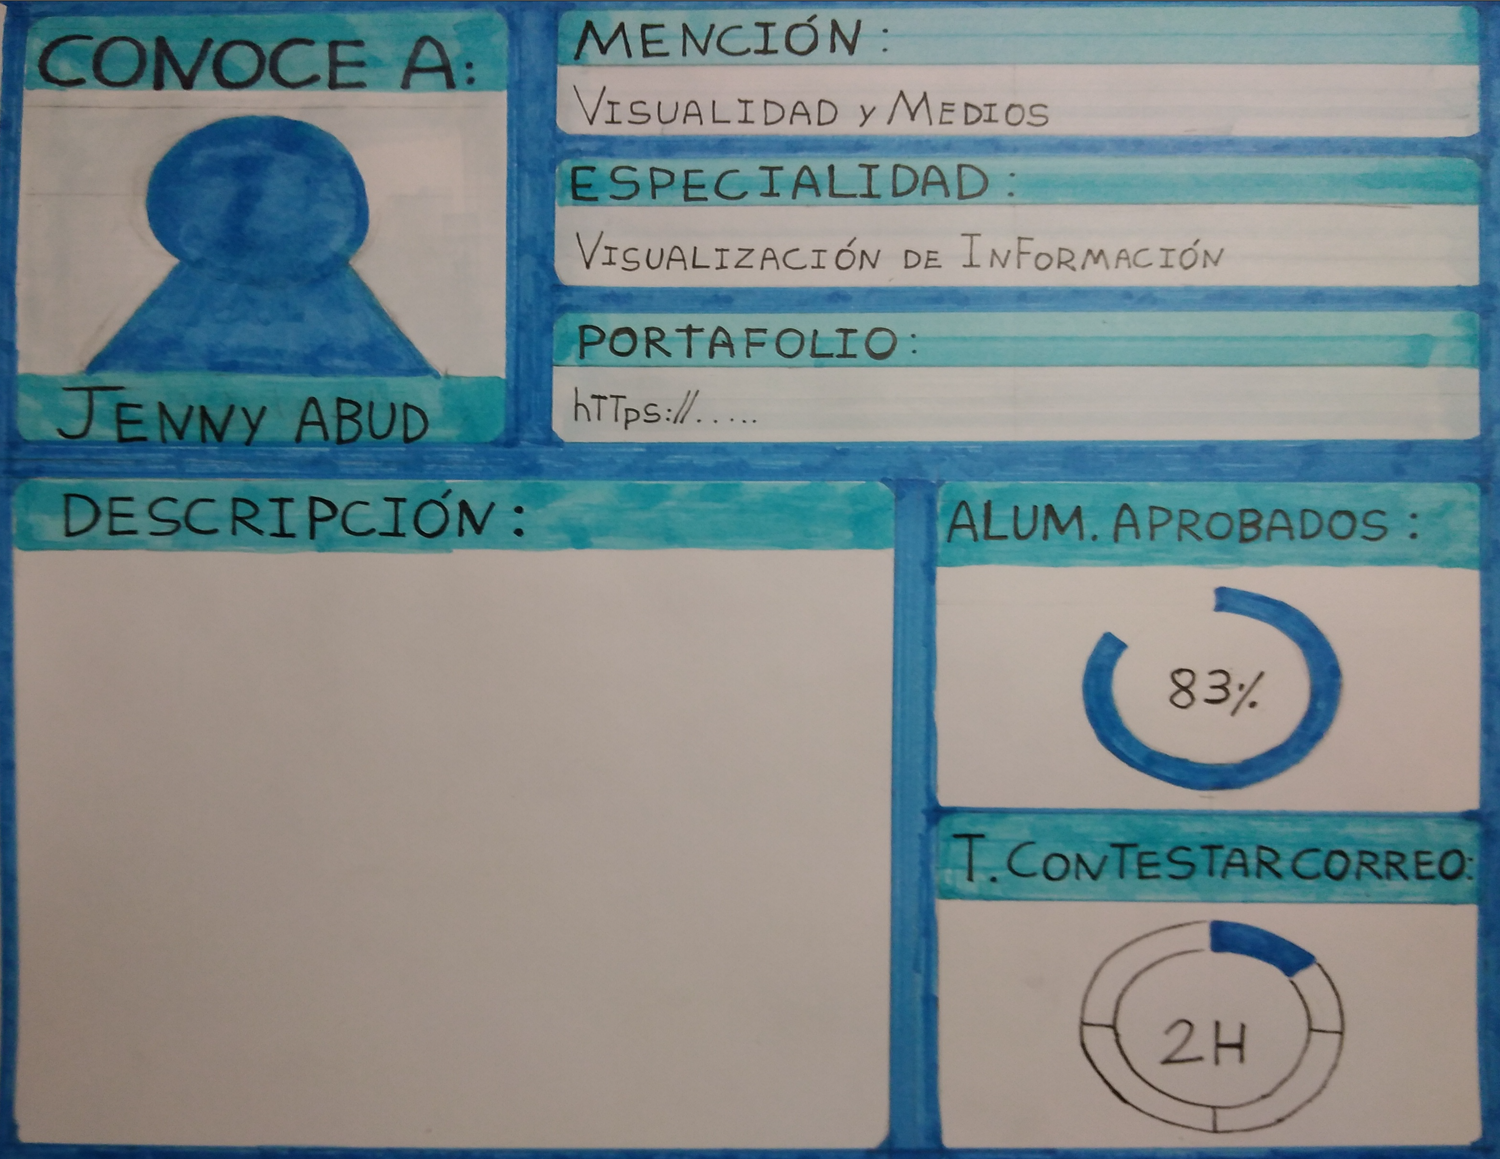 CONOCE A:
JENNY ABUD
MENCIÓN:
VISUALIDAD y MEDIOS
ESPECIALIDAD:
VISUALIZACIÓN DE INFORMACIÓN
PORTAFOLIO:
hTTps://.....
DESCRIPCIÓN:
ALUM. APROBADOS:
83%
T. CONTESTAR CORREO:
2H